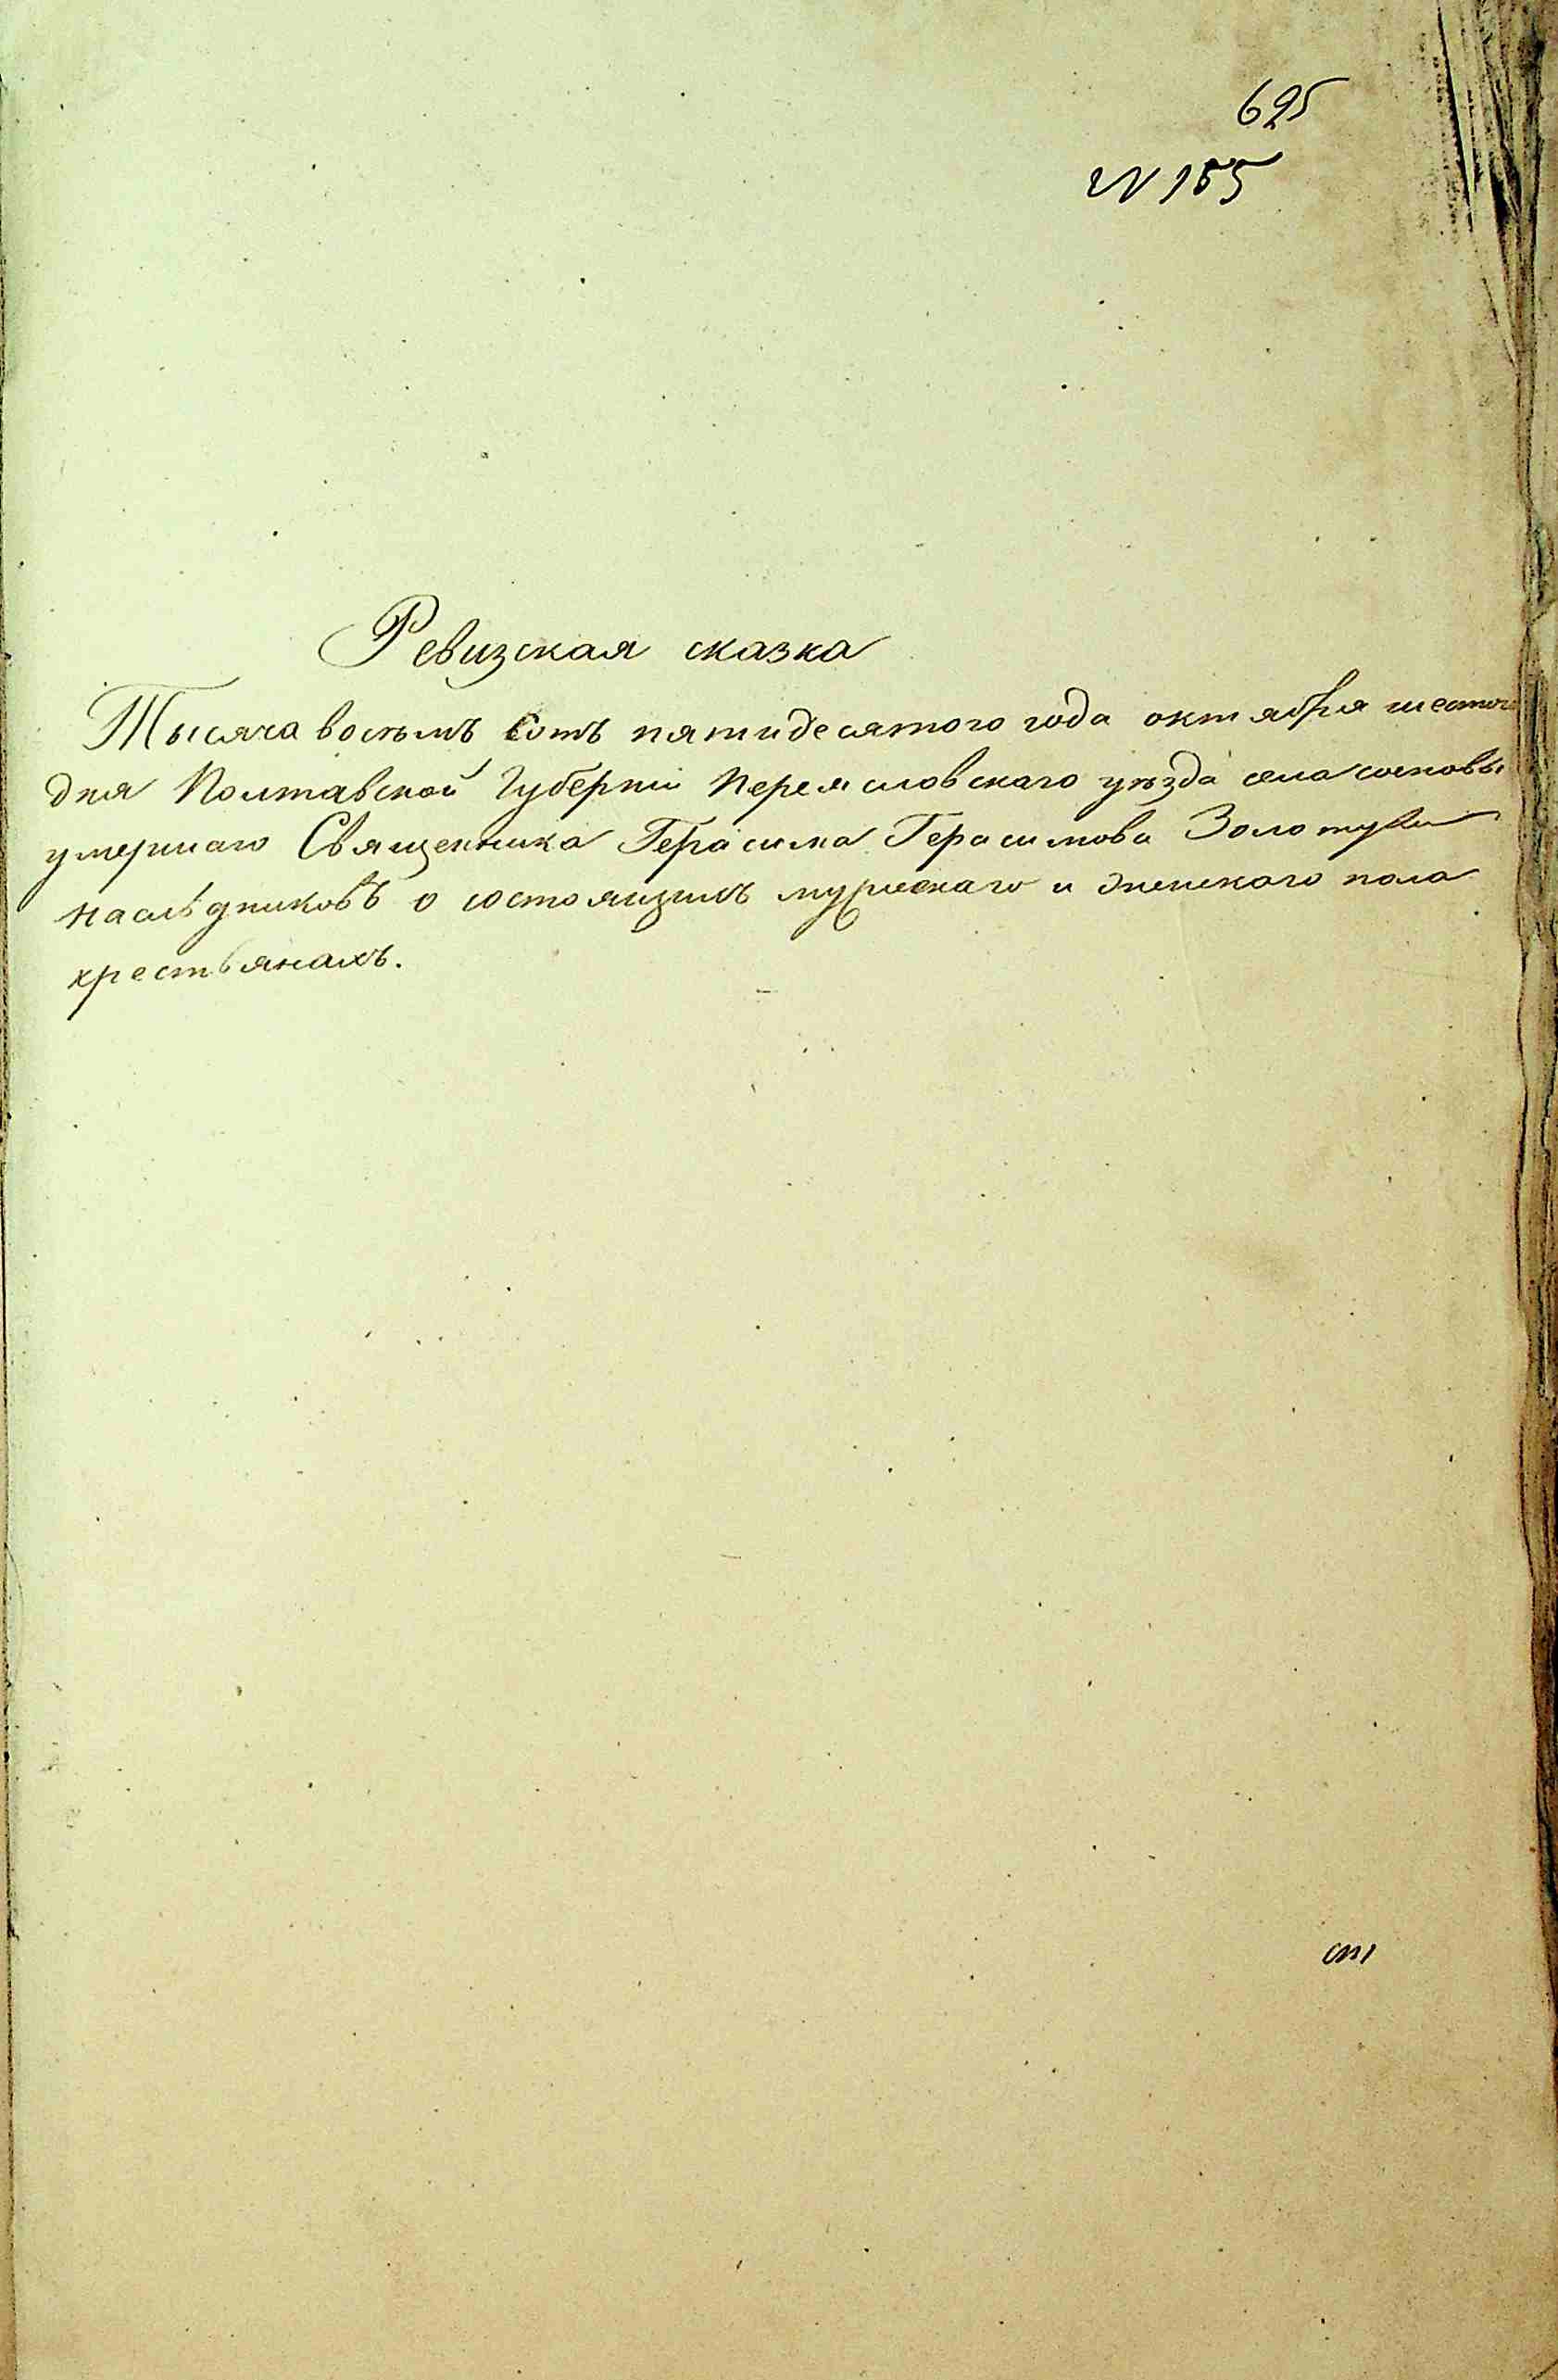 625
№ 155
Ревизская сказка
Тысяча восемъ сотъ пятидесятого года октября шестого
дня Полтавской Губерніи Переясловскаго уѣзда села Сосновы
умершаго Священника Герасима Герасимова
наслѣдниковъ о состоящихъ мужескаго и женскаго пола
крестьянахъ.